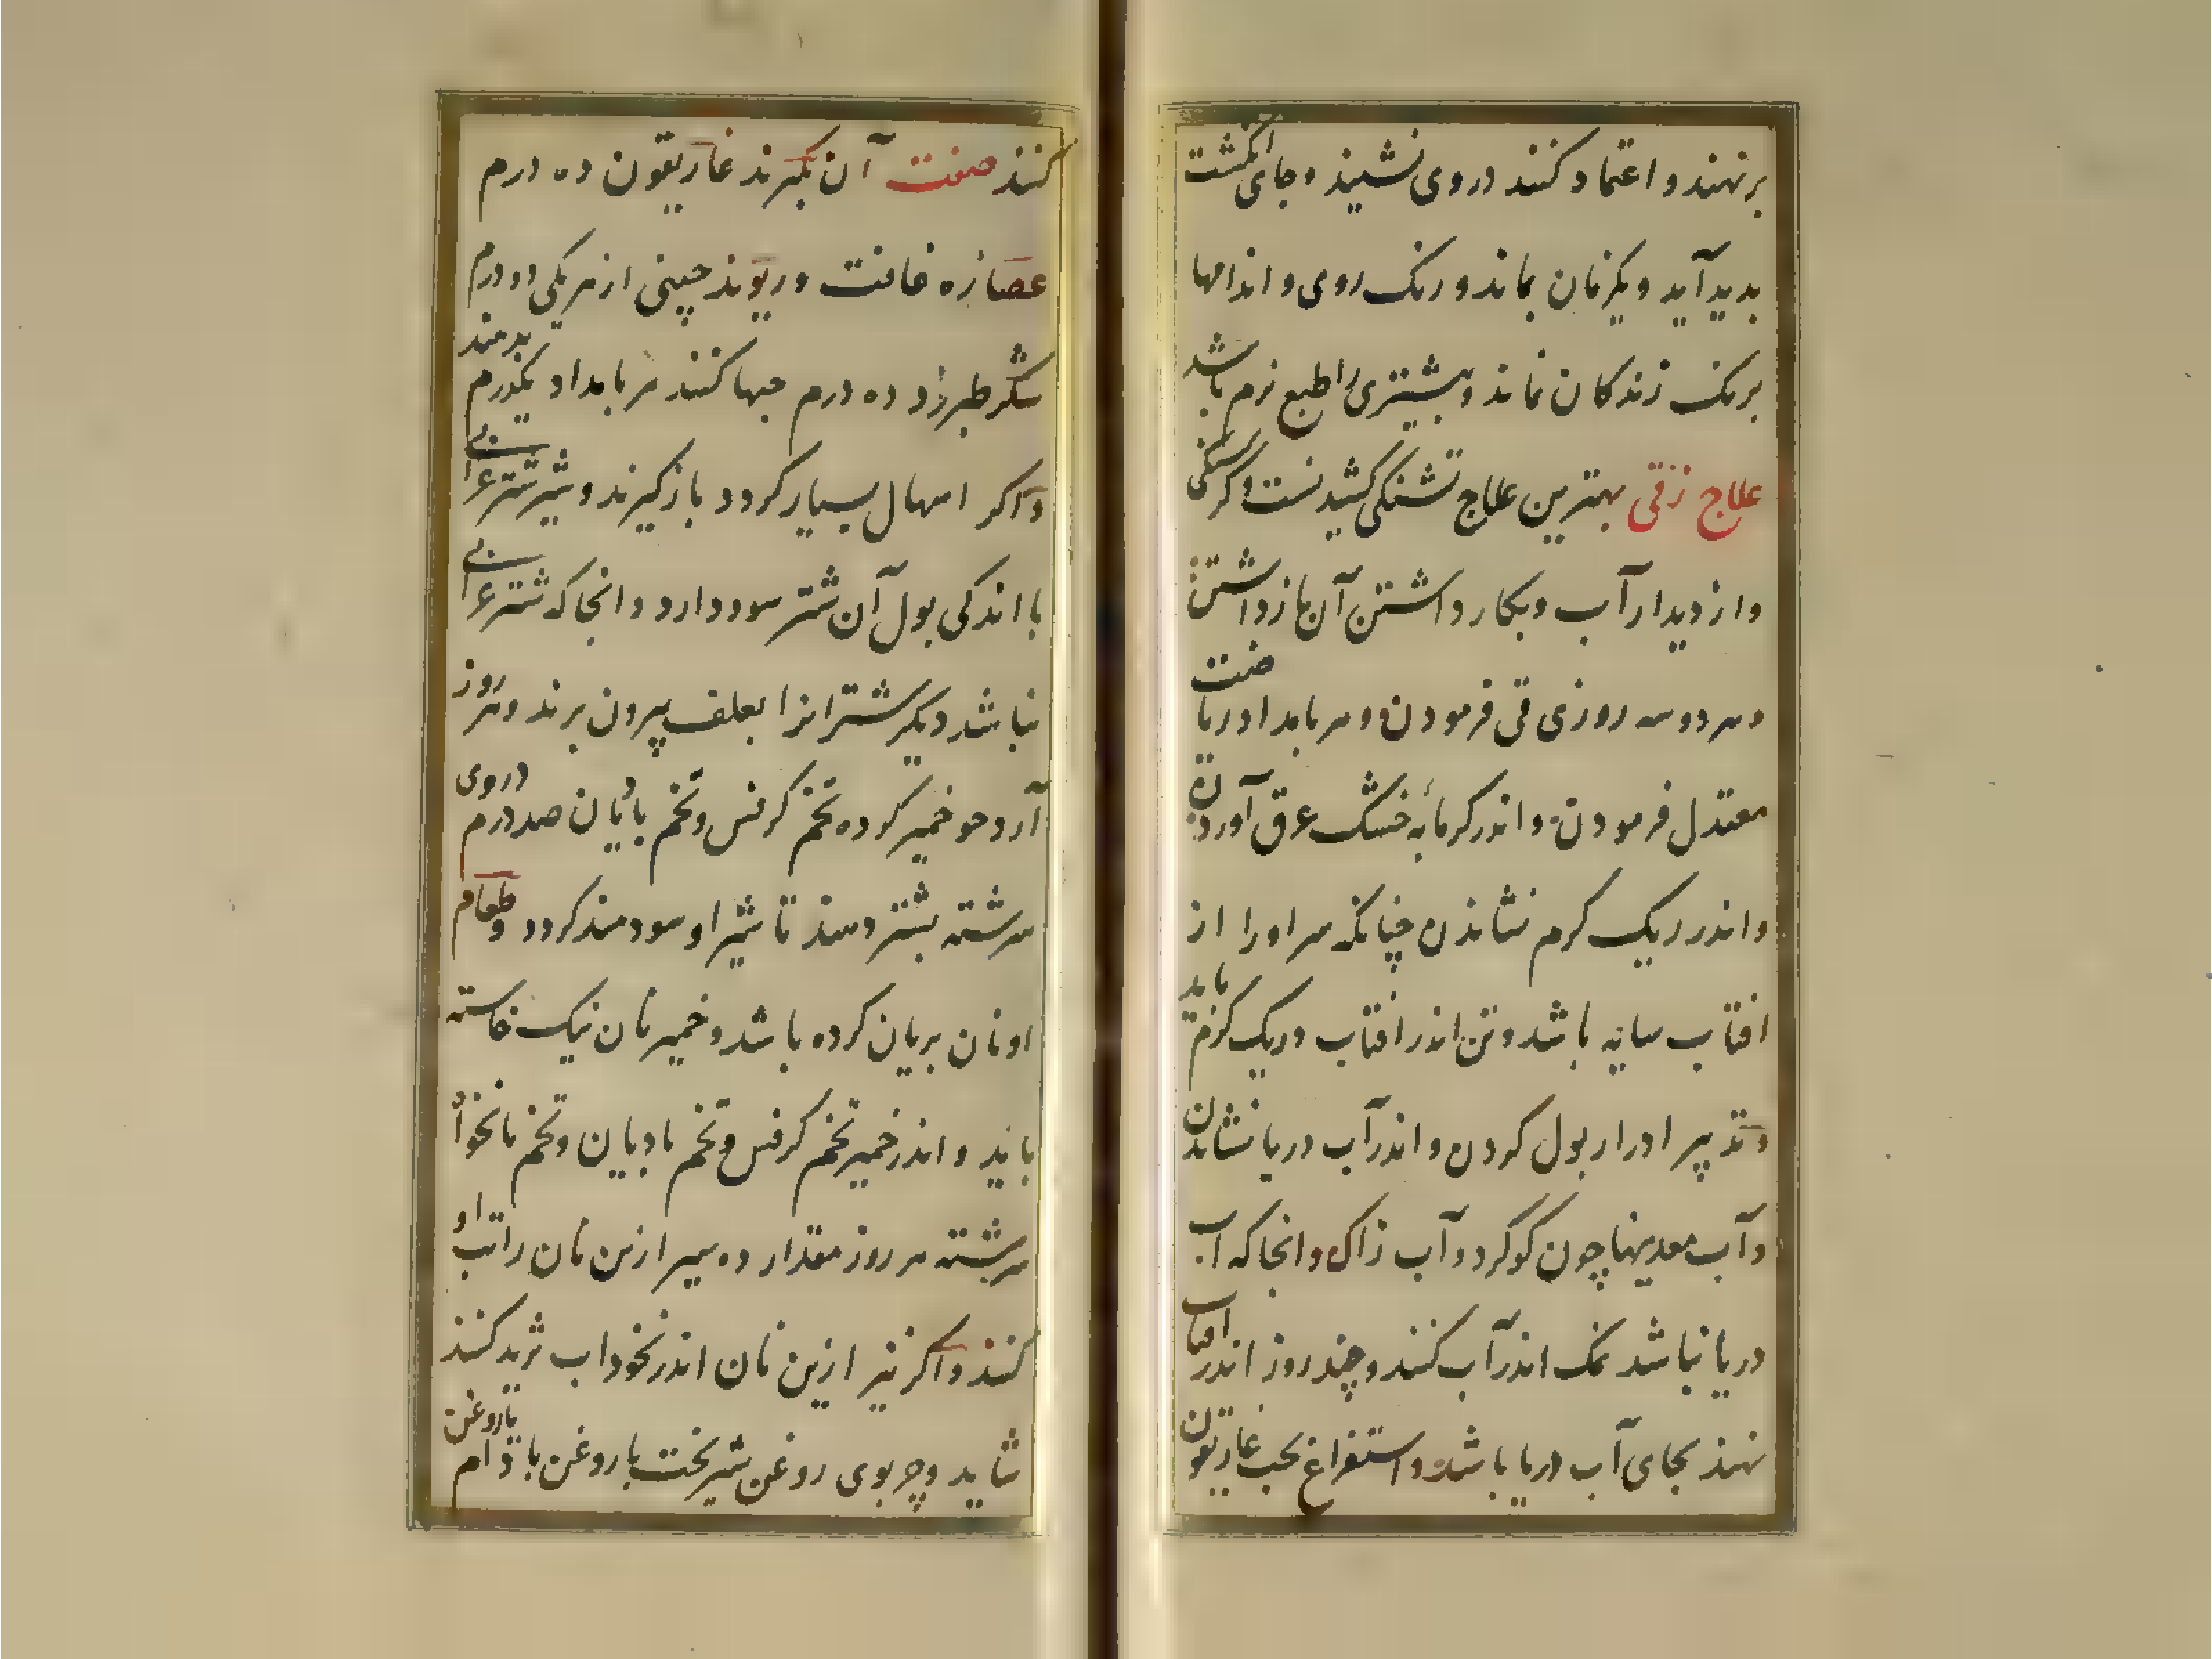 برنهند و اعتماد کنند دروی نشیند و جای انکشت
بدید آید و یکزمان بماند و رنک روی و اندامها
برنک زندکان نماند و بیشتری را طبع نرم باشد
علاج زقی بهترین علاج تشنکی کشیدنست و کرسنکی
و از دیدار آب و بکار داشتن آن بازداشتن
و هر دو سه روزی قی فرمودن و هر بامداد ریاضت
معتدل فرمودن و اندر کرمابه خشک عرق آوردن
و اندر ریک کرم نشاندن چنانکه سر او را از
افتاب سایه باشد و تن اندر افتاب و ریک کرم باید
و تدبیر ادرار بول کردن و اندر آب دریا نشاندن
و آب معدنیها چون کوکرد و آب زاک و انجا که آب
دریا نباشد نمک اندر آب کنند و چند روز اندر افتاب
نهند بجای آب دریا باشد و استفراغ بحب غاریقون
کنند صفت آن بکیرند غاریقون ده درم
عصاره غافت و ریوند چینی از هر یکی دو درم
شکر طبرزد ده درم حبها کنند هر بامداد یکدرم بدهند
و اکر اسهال بسیار کردد باز کیرند و شیر شتر اعرابی
با اندکی بول آن شتر سود دارد و انجا که شتر اعرابی
نباشد دیکر شترانرا بعلف بیرون برند و هر روز
آرد جو خمیر کرده تخم کرفس و تخم بادیان صد درم دروی
سرشته بشتر دهند تا شیر او سودمند کردد و طعام
او نان بریان کرده باشد و خمیر نان نیک خاسته
باید و اندر خمیر تخم کرفس و تخم بادیان و تخم نانخواه
سرشته هر روز مقدار ده سیر ازین نان راتب او
کنند و اکر نیز ازین نان اندر نخوداب ثرید کنند
شاید و چربوی روغن شیربخت یا روغن بادام یا روغن